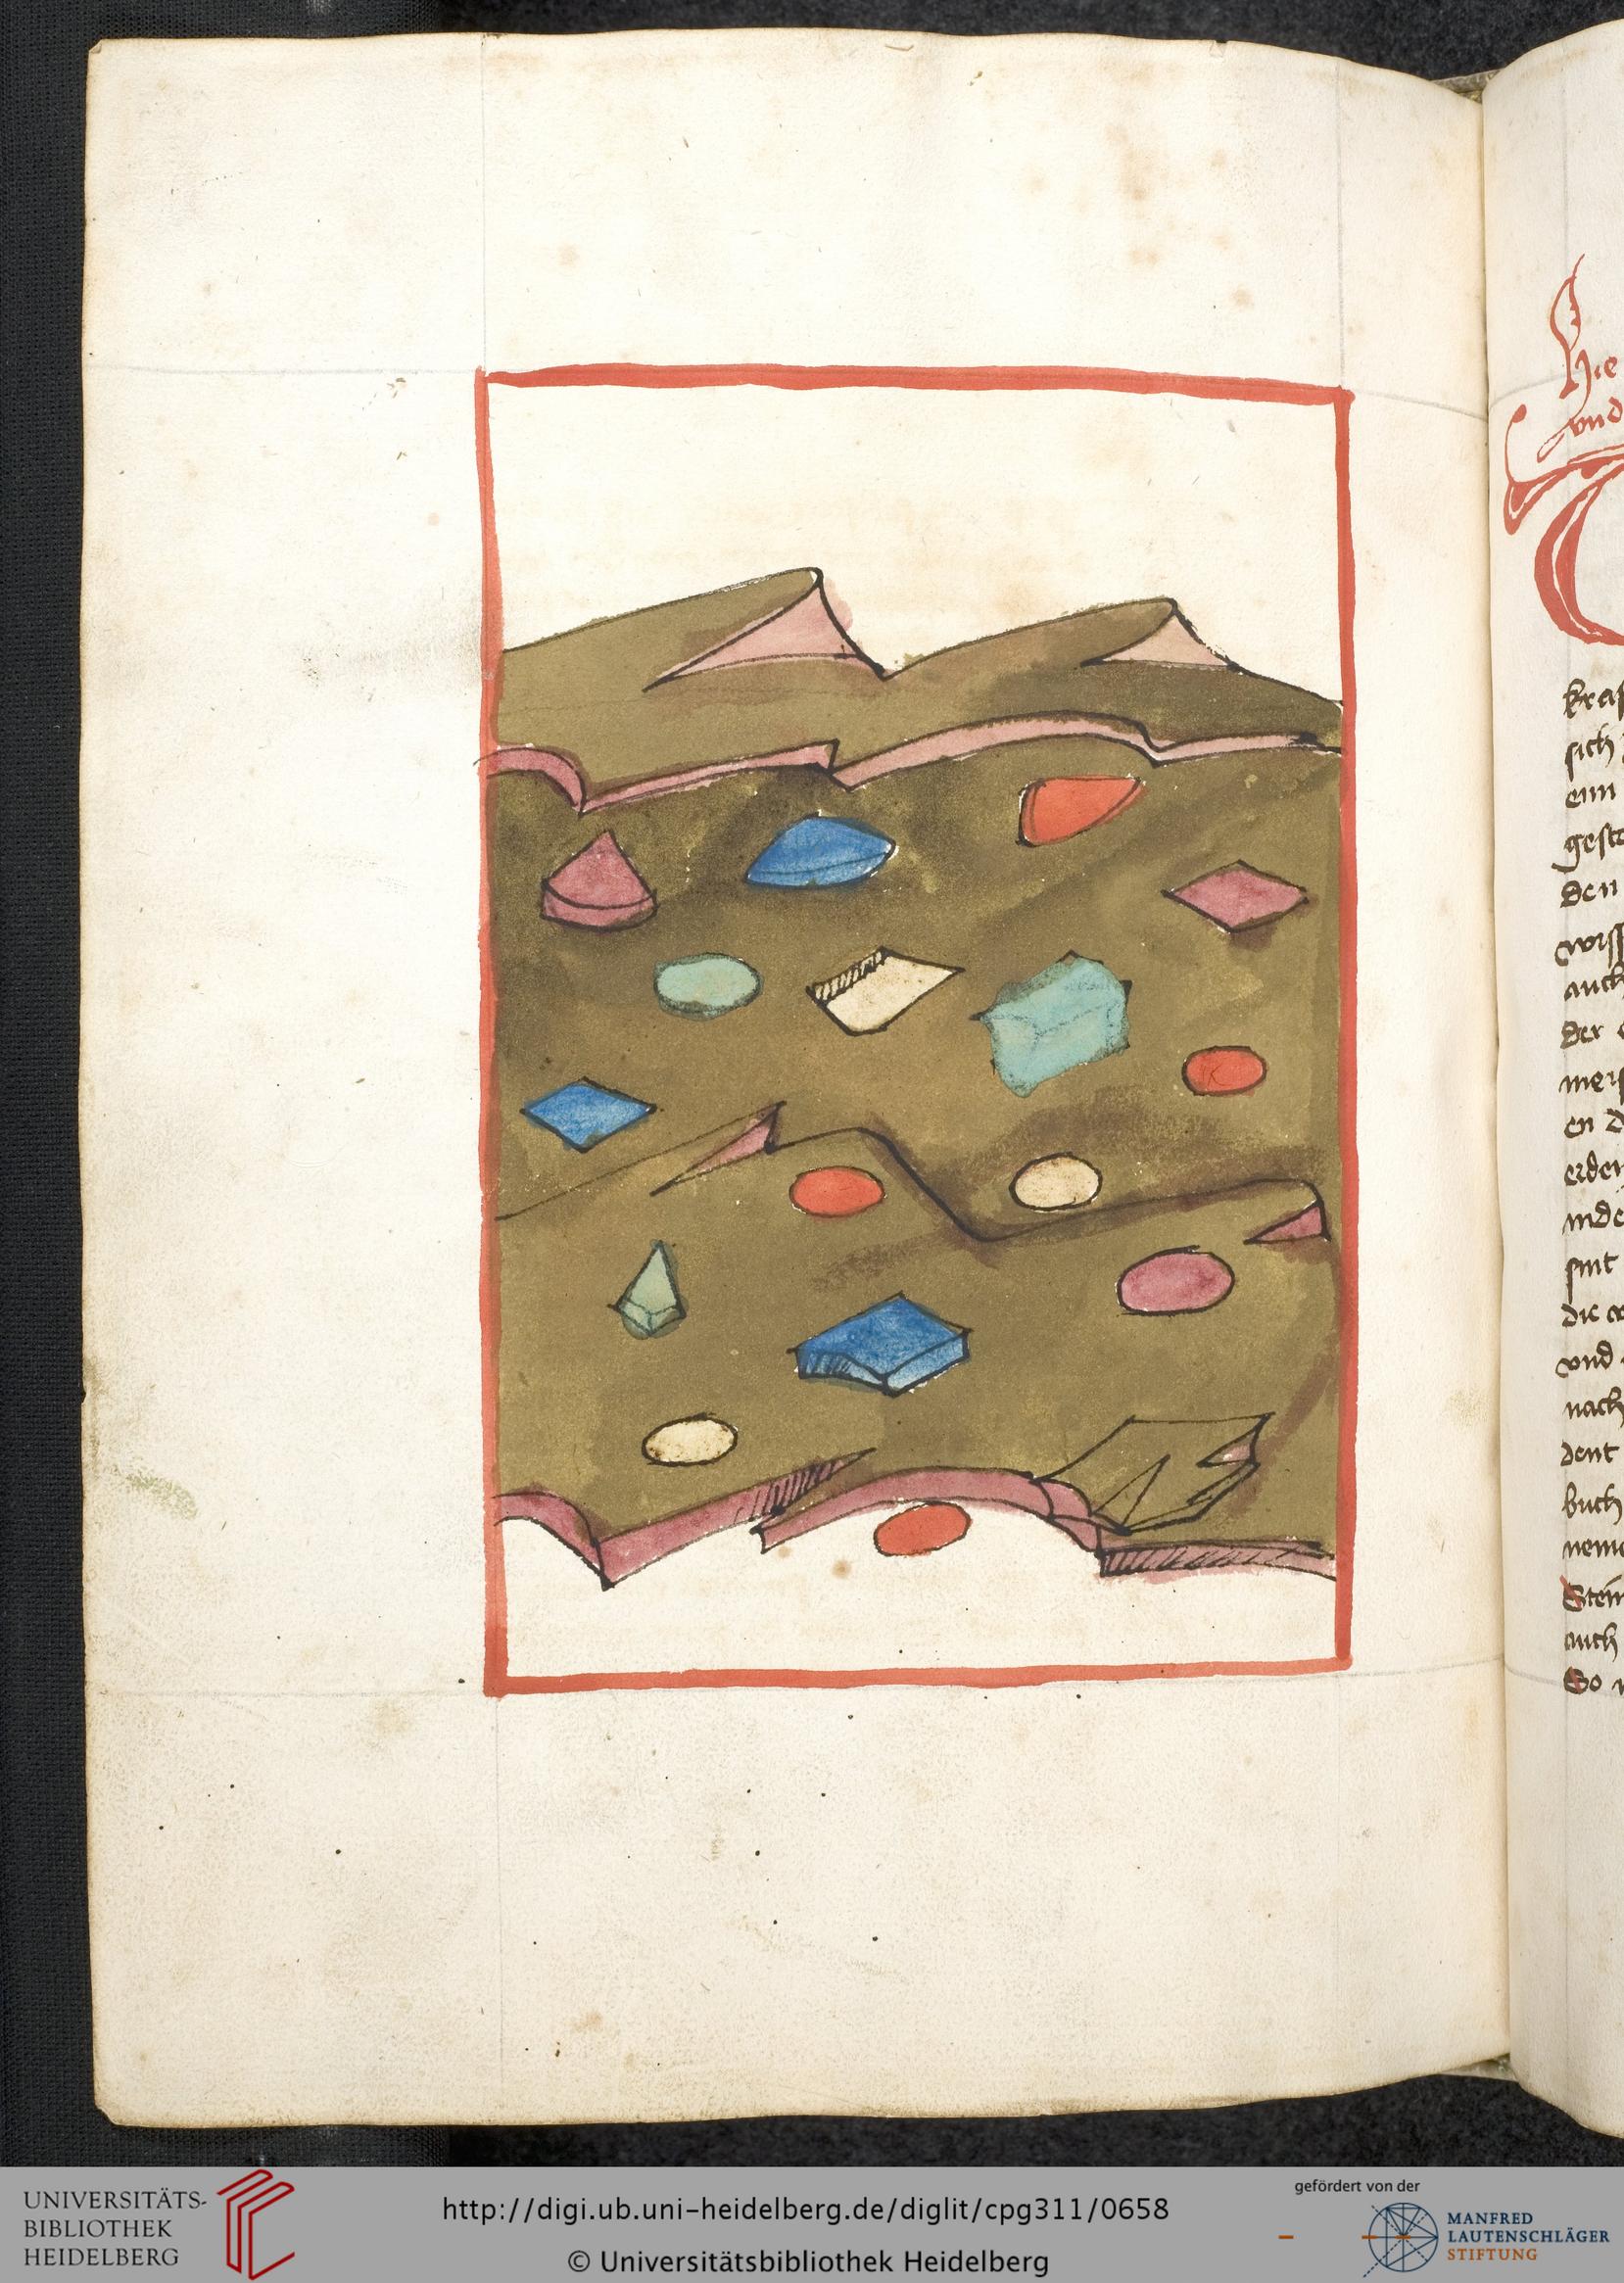 Hie
vnd
kraf
sich
ein
geste
den
wiss
auch
der
mers
en d
erden
inde
sint
die
vnd
nach
dent
buch
neme
Stein
auch
So
UNIVERSITÄTS-
BIBLIOTHEK
HEIDELBERG
http://digi.ub.uni-heidelberg.de/diglit/cpg311/0658
© Universitätsbibliothek Heidelberg
gefördert von der
MANFRED
LAUTENSCHLÄGER
STIFTUNG